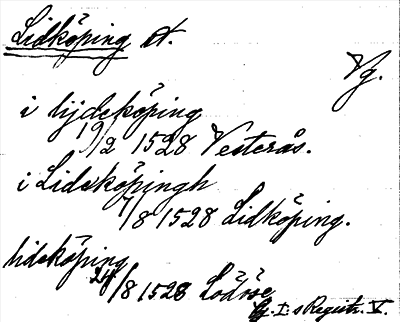 Lidköping st.
Vg.
i lijdeköping
19/2 1528 Vesterås.
i Lideköpingh
7/8 1528 Lidköping.
lideköping
24/8 1528 Lödöse
G. I:s Registr. V.